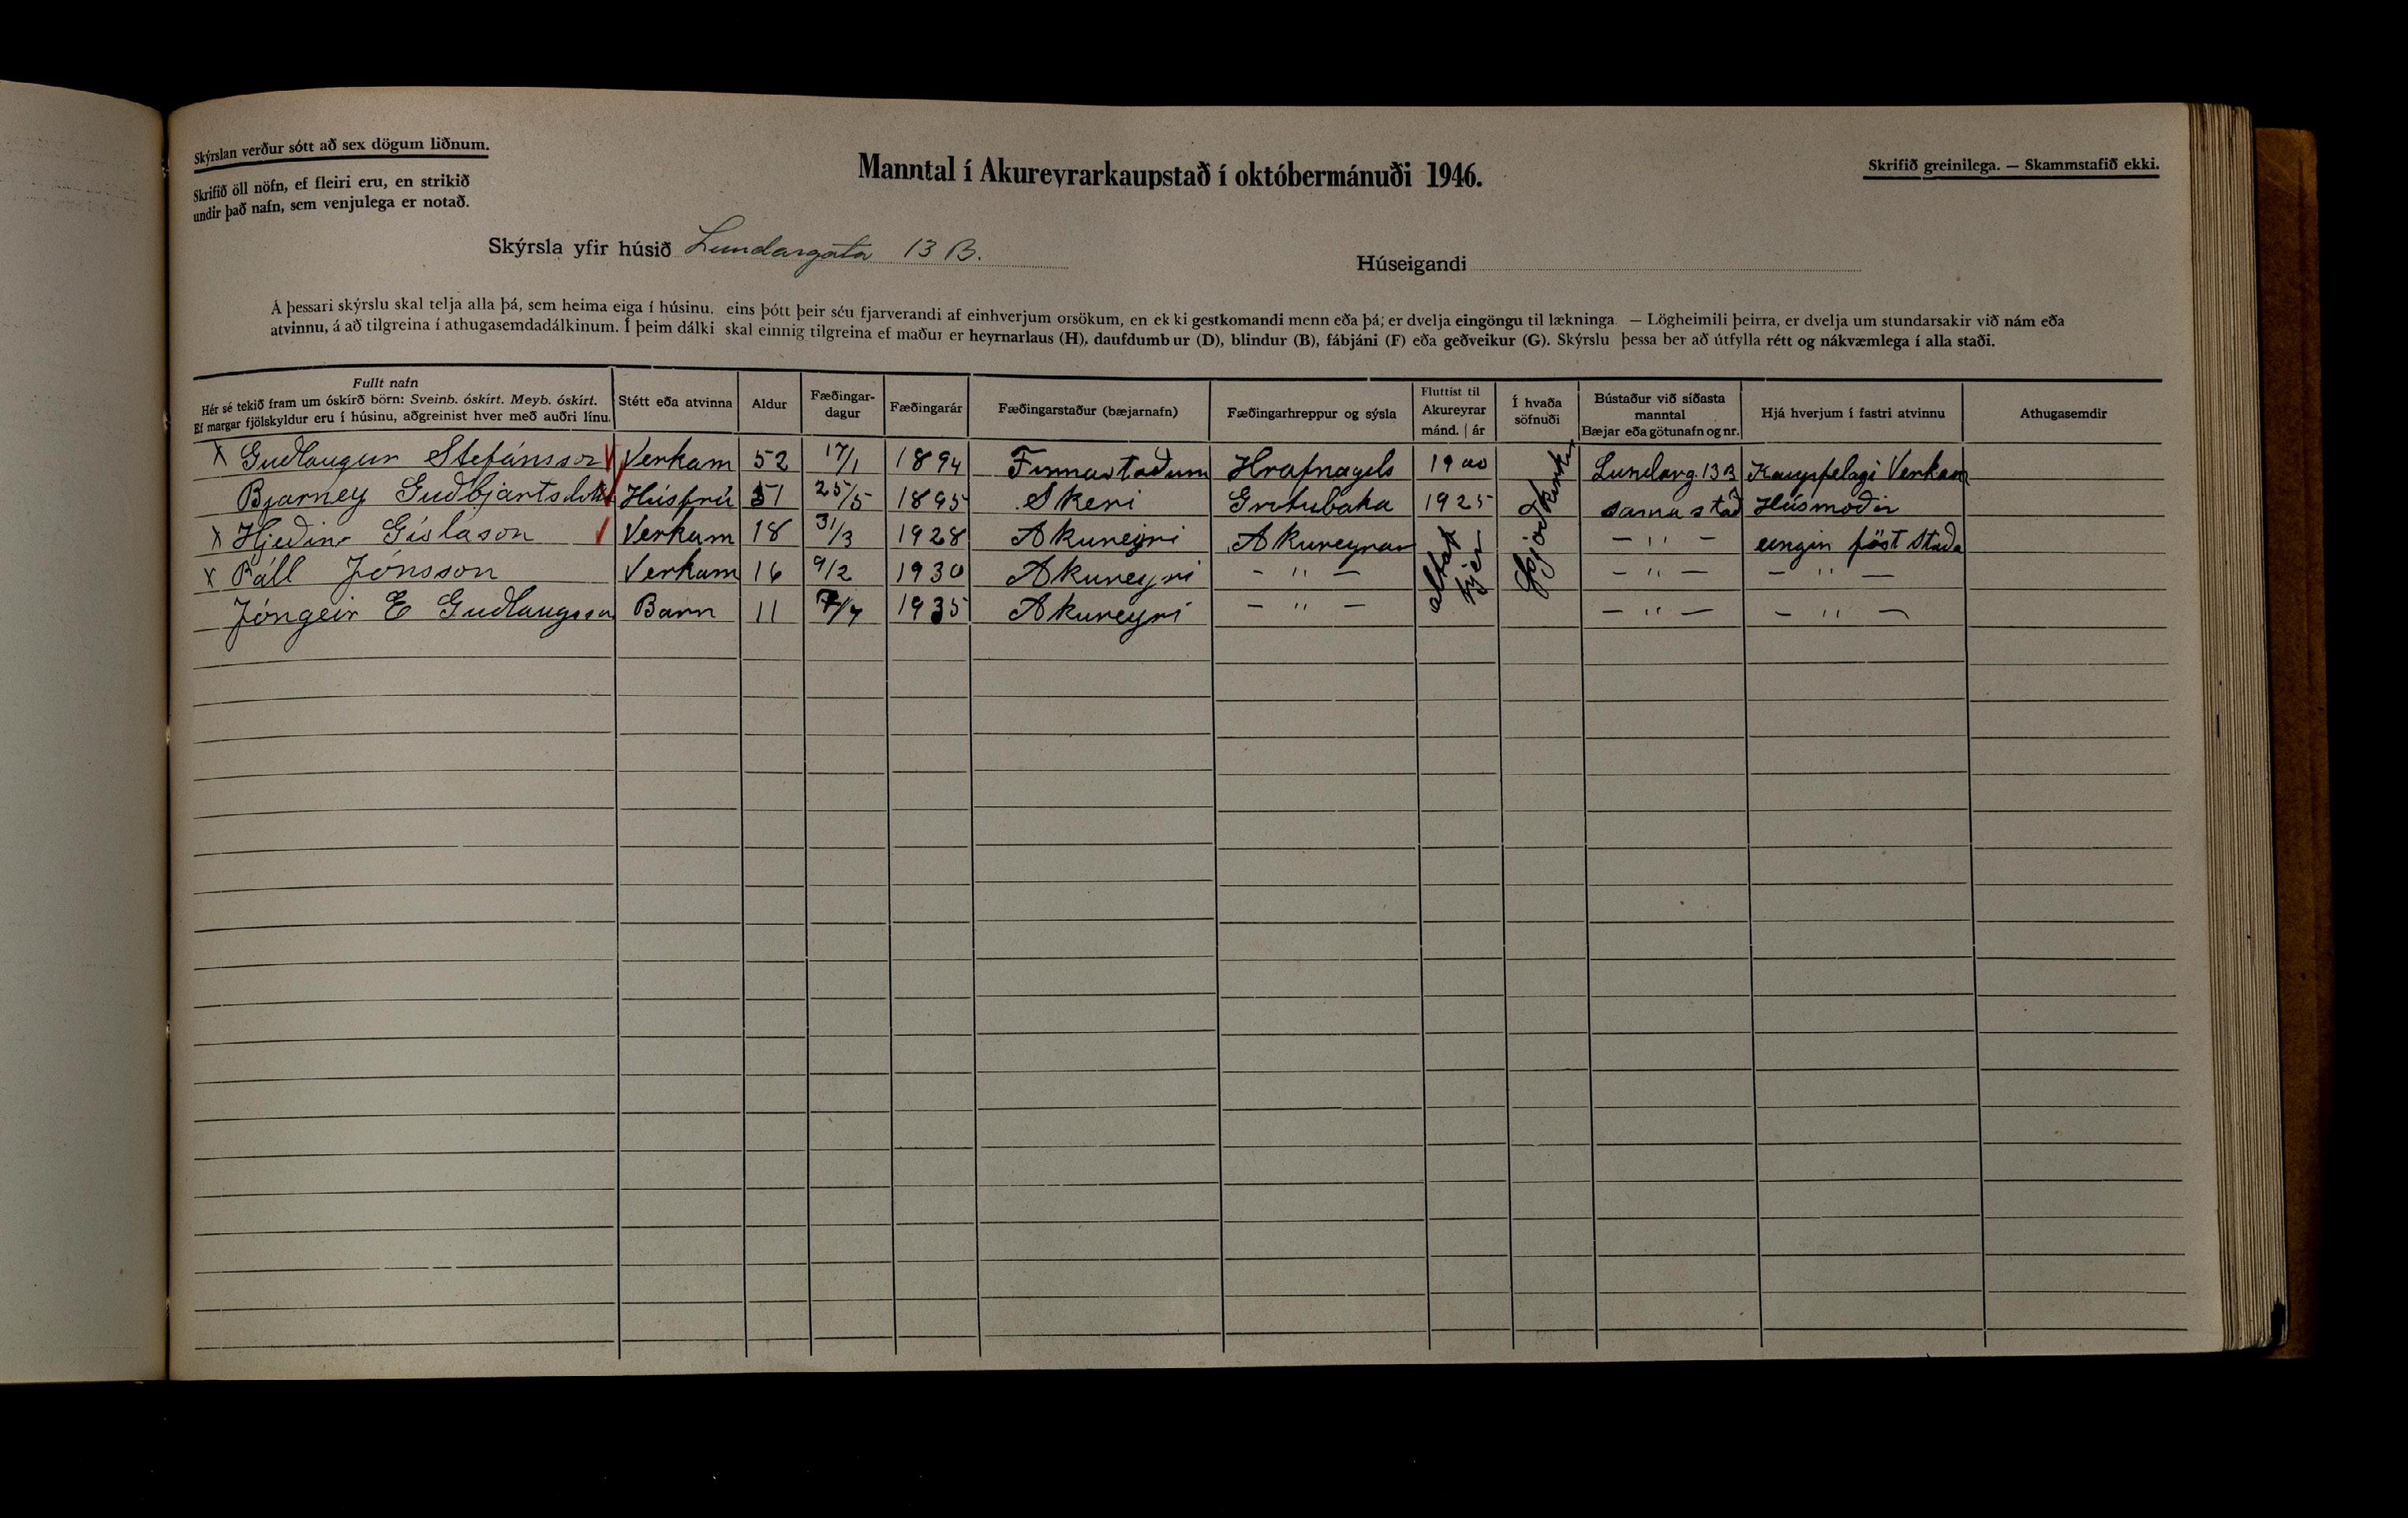 Skýrslan verður sótt að sex dögum liðnum.
Skrifið öll nöfn, ef fleiri eru, en strikið
undir það nafn, sem venjulega er notað.
Manntal í Akureyrarkaupstað í októbermánuði 1946.
Skrifið greinilega. — Skammstafið ekki.
Skýrsla yfir húsið Lundargata 13 B.
Húseigandi
Á þessari skýrslu skal telja alla þá, sem heima eiga í húsinu, eins þótt þeir séu fjarverandi af einhverjum orsökum, en ekki gestkomandi menn eða þá, er dvelja eingöngu til lækninga. — Lögheimili þeirra, er dvelja um stundarsakir við nám eða
atvinnu, á að tilgreina í athugasemdadálkinum. Í þeim dálki skal einnig tilgreina ef maður er heyrnarlaus (H), daufdumbur (D), blindur (B), fábjáni (F) eða geðveikur (G). Skýrslu þessa ber að útfylla rétt og nákvæmlega í alla staði.
Fullt nafn
Hér sé tekið fram um óskírð börn: Sveinb. óskírt. Meyb. óskírt.
Ef margar fjölskyldur eru í húsinu, aðgreinist hver með auðri línu.
Stétt eða atvinna
Aldur
Fæðingar-
dagur
Fæðingarár
Fæðingarstaður (bæjarnafn)
Fæðingarhreppur og sýsla
Fluttist til
Akureyrar
mánd. | ár
Í hvaða
söfnuði
Bústaður við síðasta
manntal
Bæjar eða götunafn og nr.
Hjá hverjum í fastri atvinnu
Athugasemdir
x Guðlaugur Stefánsson Verkam 52 17/1 1894 Finnastoðum Hrafnagils 1900 Lundarg. 13 B Kaupfelagi Verkam
Bjarney Guðbjartsdottir Húsfrú 51 25/5 1895 Skeri Grítubaka 1925 sama stað Húsmoðir
x Hjeðinn Gíslason Verkam 18 31/3 1928 Akureyri Akureyrar — " — eingin föst staða
x Páll Jónsson Verkam 16 9/2 1930 Akureyri — " — — " — — " —
Jóngeir E Guðlaugsson Barn 11 7/7 1935 Akureyri — " — — " — — " —
altaf
hjer
þjóðkirkju